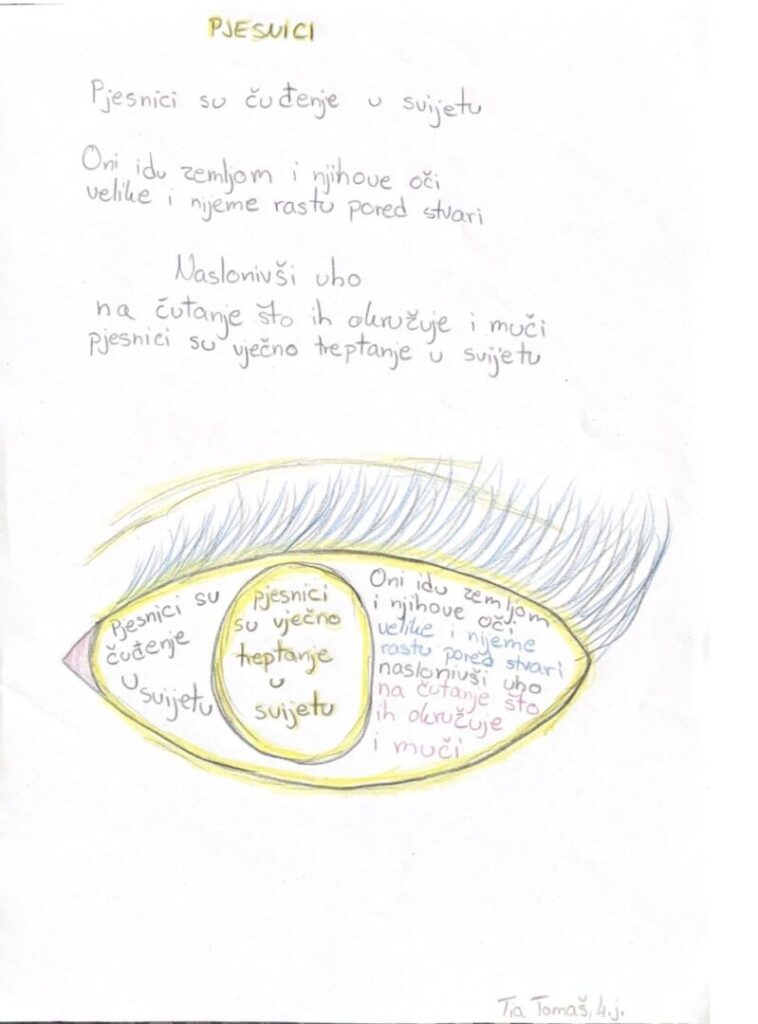 PJESNICI
Pjesnici su čuđenje u svijetu
Oni idu zemljom i njihove oči
velike i nijeme rastu pored stvari
Naslonivši uho
na ćutanje što ih okružuje i muči
pjesnici su vječno treptanje u svijetu
Pjesnici su
čuđenje
u svijetu
pjesnici
su vječno
treptanje
u
svijetu
Oni idu zemljom
i njihove oči
velike i nijeme
rastu pored stvari
naslonivši uho
na ćutanje što
ih okružuje
i muči
Tia Tomaš, 4.j.